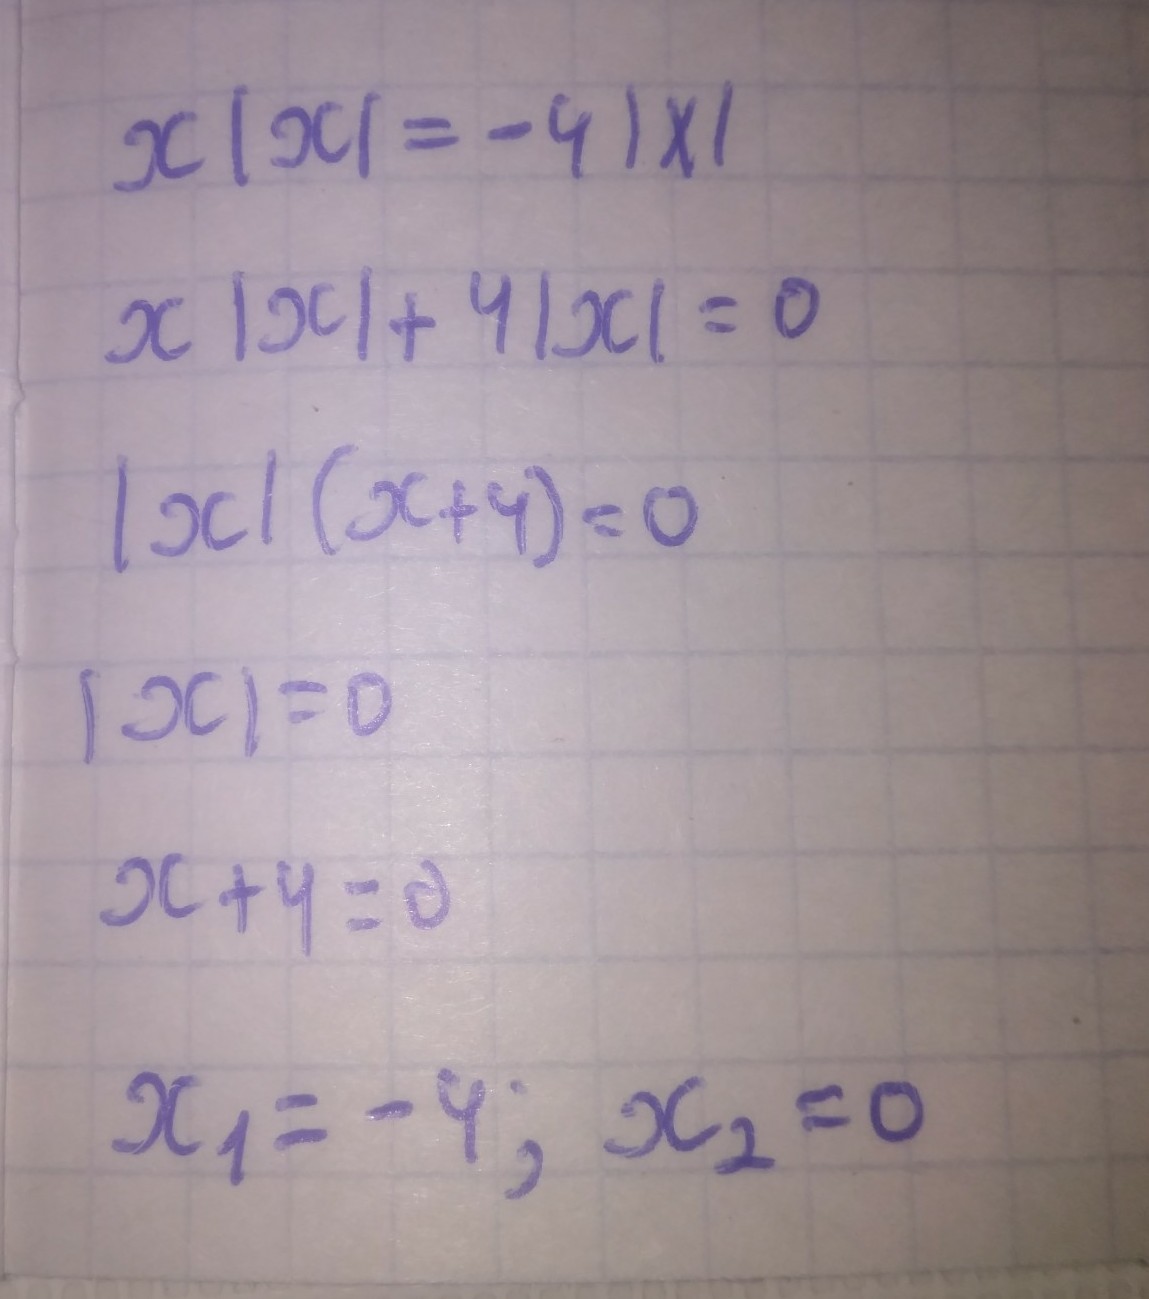 x|x| = -4|x|
x|x| + 4|x| = 0
|x|(x+4) = 0
|x| = 0
x+4 = 0
x₁ = -4; x₂ = 0